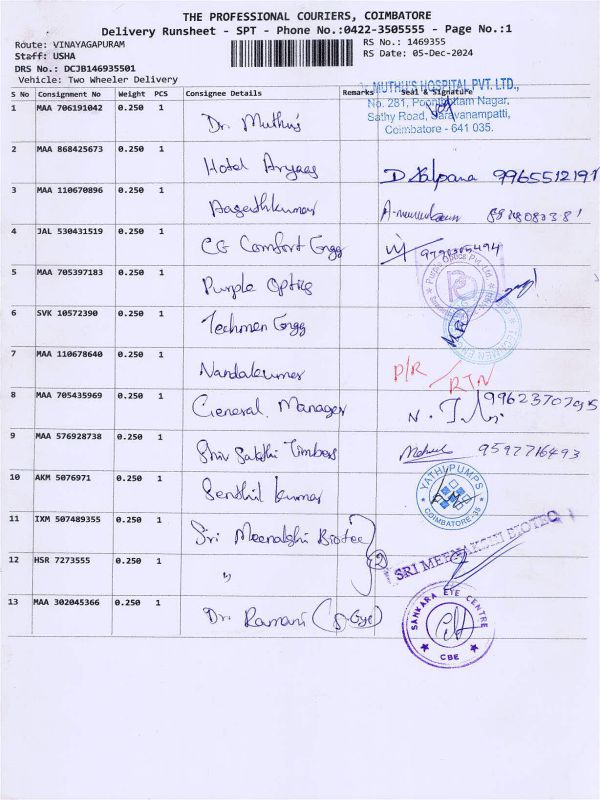 THE PROFESSIONAL COURIERS, COIMBATORE
Delivery Runsheet - SPT - Phone No.:0422-3505555 - Page No.:1
Route: VINAYAGAPURAM
RS No.: 1469355
Staff: USHA
RS Date: 05-Dec-2024
DRS No.: DCJB146935501
Vehicle: Two Wheeler Delivery
MUTHU'S HOSPITAL PVT. LTD.,
S No Consignment No Weight PCS Consignee Details Remarks Seal & Signature
No. 281, Poonthottam Nagar,
Sathy Road, Saravanampatti,
Coimbatore - 641 035.
1 MAA 706191042 0.250 1 Dr. Muthu's
2 MAA 868425673 0.250 1 Hotel Aryaas D Kalpana 9965512191
3 MAA 110670896 0.250 1
4 JAL 530431519 0.250 1 CG Comfort Engg
5 MAA 705397183 0.250 1 Purple Optics
Purple Optics Pvt. Ltd
6 SVK 10572390 0.250 1 Techmen Engg
7 MAA 110678640 0.250 1 Nandakumar D/R RTN
8 MAA 705435969 0.250 1 General Manager
9 MAA 576928738 0.250 1 Shiv Sakthi Timbers 9597716493
10 AKM 5076971 0.250 1 Senthil kumar
YATHI PUMPS
COIMBATORE-35
11 IXM 507489355 0.250 1 Sri Meenakshi Biotec
SRI MEENAKSHI BIOTEC
12 HSR 7273555 0.250 1 " 2
13 MAA 302045366 0.250 1 Dr. Ramani (S-Eye)
SANKARA EYE CENTRE
CBE